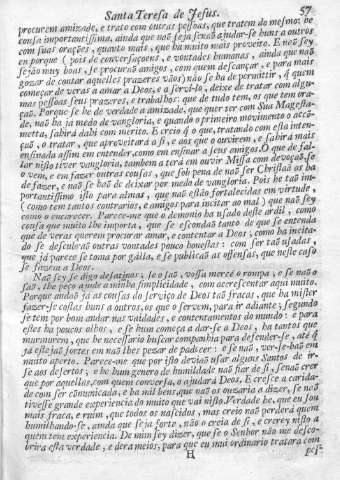 Santa Teresa de Jesus. 57
procurem amizade, e trato com outras pessoas, que tratem do mesmo: he
cousa importantissima, ainda que naõ seja senaõ ajudar-se huns a outros
com suas orações, quanto mais, que ha muito mais proveito. E naõ sey
eu porque (pois de conversaçoens, e vontades humanas, ainda que naõ
sejaõ muy boas, se procuraõ amigos, com quem descançar, e para mais
gozar de contar aquelles prazeres vãos) naõ se ha de permittir, q̃ quem
começar de veras a amar a Deos, e a servi-lo, deixe de tratar com algu-
mas pessoas seus prazeres, e trabalhos: que de tudo tem, os que tem ora-
çaõ. Porque se he de verdade a amizade, que quer ter com Sua Magesta-
de, naõ ha ja medo de vangloria, e quando o primeiro movimento o acco-
metta, sahirá dahi com merito. E creio q̃ o que, tratando com esta inten-
çaõ, o tratar, que aproveitará a si, e aos que o ouvirem, e sahirá mais
ensinado assim em entender, como em ensinar a seus amigos. O que de fal-
lar nisso tiver vangloria, tambem a terá em ouvir Missa com devoçaõ, se
o vem, e em fazer outras cousas, que sob pena de naõ ser Christaõ as ha
de fazer, e naõ se haõ de deixar por medo de vangloria. Pois he taõ im-
portantissimo isto para almas, que naõ estaõ fortalecidas em virtude,
(como tem tantos contrarios, e amigos para incitar ao mal) que naõ sey
como o encarecer. Parece-me que o demonio ha usado deste ardil, como
cousa que muito lhe importa, que se escondaõ tanto de que se entenda
que de veras querem procurar amar, e contentar a Deos, como ha incita-
do se descubraõ outras vontades pouco honestas: com ser taõ usadas,
que já parece se toma por gála, e se publicaõ as offensas, que neste caso
se fazem a Deos.
Naõ sey se digo desatinos, se o saõ, vossa mercé o rompa, e se naõ o
saõ, lhe peço ajude a minha simplicidade, com acrescentar aqui muito.
Porque andaõ já as cousas do serviço de Deos taõ fracas, que ha mister
fazer-se costas huns a outros, os que o servem, para ir adiante; segundo
se tem por bom andar nas vaidades, e contentamentos do mundo: e para
estes ha poucos olhos, e se hum começa a dar-se a Deos, ha tantos que
murmurem, que he necessario buscar companhia para defender-se, até q̃
já estejaõ fortes em naõ lhes pezar de padecer: e se naõ, ver-se-haõ em
muito aperto. Parece-me que por isto deviaõ usar alguns Santos de ir-
se aos desertos; e he hum genero de humildade naõ fiar de si, senaõ crer
que por aquelles, com quem conversa, o ajudará Deos. E cresce a carida-
de com ser cõmunicada, e ha mil bens, que naõ os ousaria a dizer, se naõ
tivesse grande experiencia do muito que vai nisto. Verdade he, que eu sou
mais fraca, e ruim, que todos os nascidos, mas creio naõ perderá quem
humilhando-se, ainda que seja forte, naõ o creia de si, e crer ey nisto a
quem tem experiencia. De mim sey dizer, que se o Senhor naõ me desco-
brira esta verdade, e dera meios, para que eu mui ordinario tratara com
H pes-